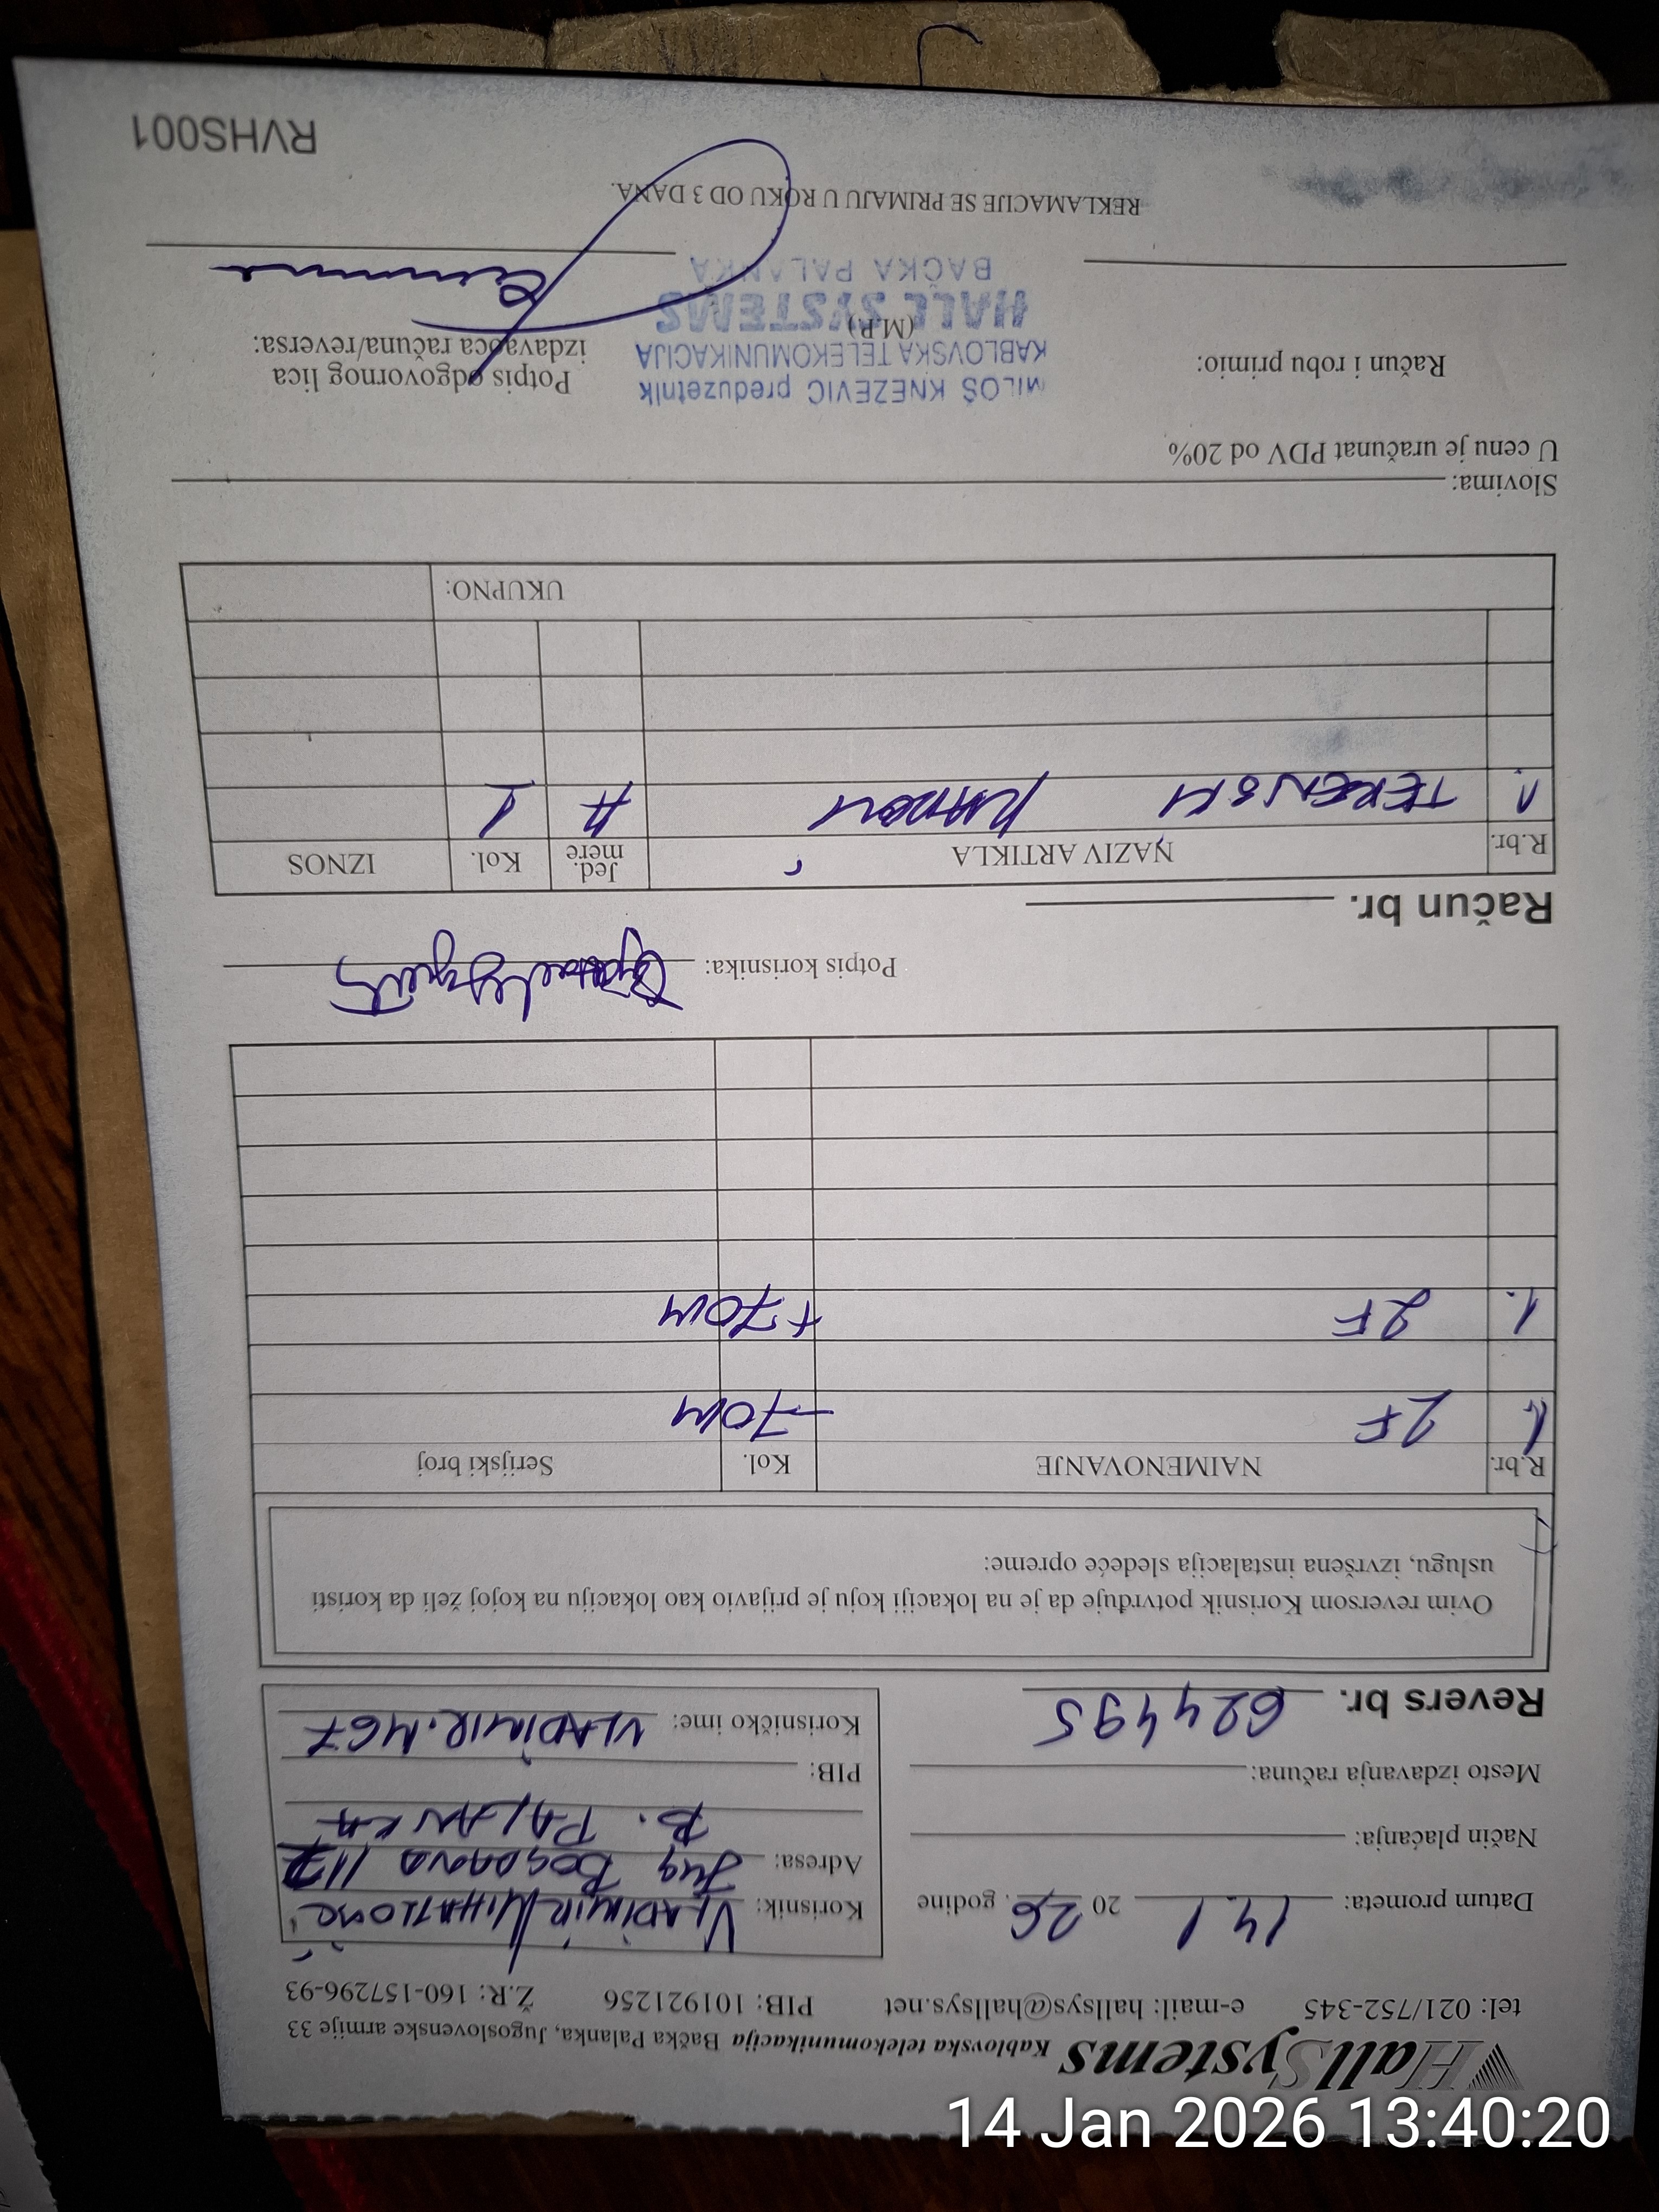 HallSystems Kablovska telekomunikacija Bačka Palanka, Jugoslovenske armije 33
tel: 021/752-345 e-mail: hallsys@hallsys.net PIB: 101921256 Ž.R: 160-157296-93
Datum prometa: 14.1 20 26. godine
Način plaćanja:
Mesto izdavanja računa:
Revers br. 624495
Korisnik: VLADIMIR MIHAILOVIĆ
Adresa: Jug BOGDANA 117
B. PALANKA
PIB:
Korisničko ime: VLADIMIR.M67
Ovim reversom Korisnik potvrđuje da je na lokaciji koju je prijavio kao lokaciju na kojoj želi da koristi
uslugu, izvršena instalacija sledeće opreme:
R.br. NAIMENOVANJE Kol. Serijski broj
1. 2F -70M
1. 2F +70M
Potpis korisnika:
Račun br.
R.br. NAZIV ARTIKLA Jed. mere Kol. IZNOS
1. TERENSKI 1
UKUPNO:
Slovima:
U cenu je uračunat PDV od 20%
Račun i robu primio:
(M.P.)
MILOŠ KNEŽEVIĆ preduzetnik
KABLOVSKA TELEKOMUNIKACIJA
HALL SYSTEMS
BAČKA PALANKA
Potpis odgovornog lica
izdavaoca računa/reversa:
REKLAMACIJE SE PRIMAJU U ROKU OD 3 DANA.
RVHS001
14 Jan 2026 13:40:20